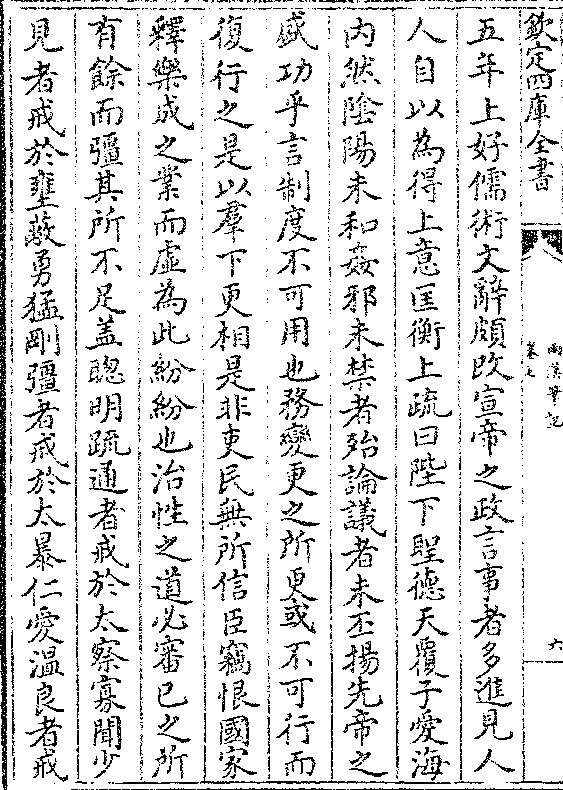 欽定四庫全書
兩漢筆記
卷七
六
五年上好儒術文辭頗改宣帝之政言事者多進見人
人自以為得上意匡衡上疏曰陛下聖德天覆子愛海
内然陰陽未和姦邪未禁者殆論議者未丕揚先帝之
盛功乎言制度不可用也務變更之所更或不可行而
復行之是以羣下更相是非吏民無所信臣竊恨國家
釋樂成之業而虛為此紛紛也治性之道必審已之所
有餘而彊其所不足蓋聰明疏通者戒於太察寡聞少
見者戒於壅蔽勇猛剛彊者戒於太暴仁愛溫良者戒